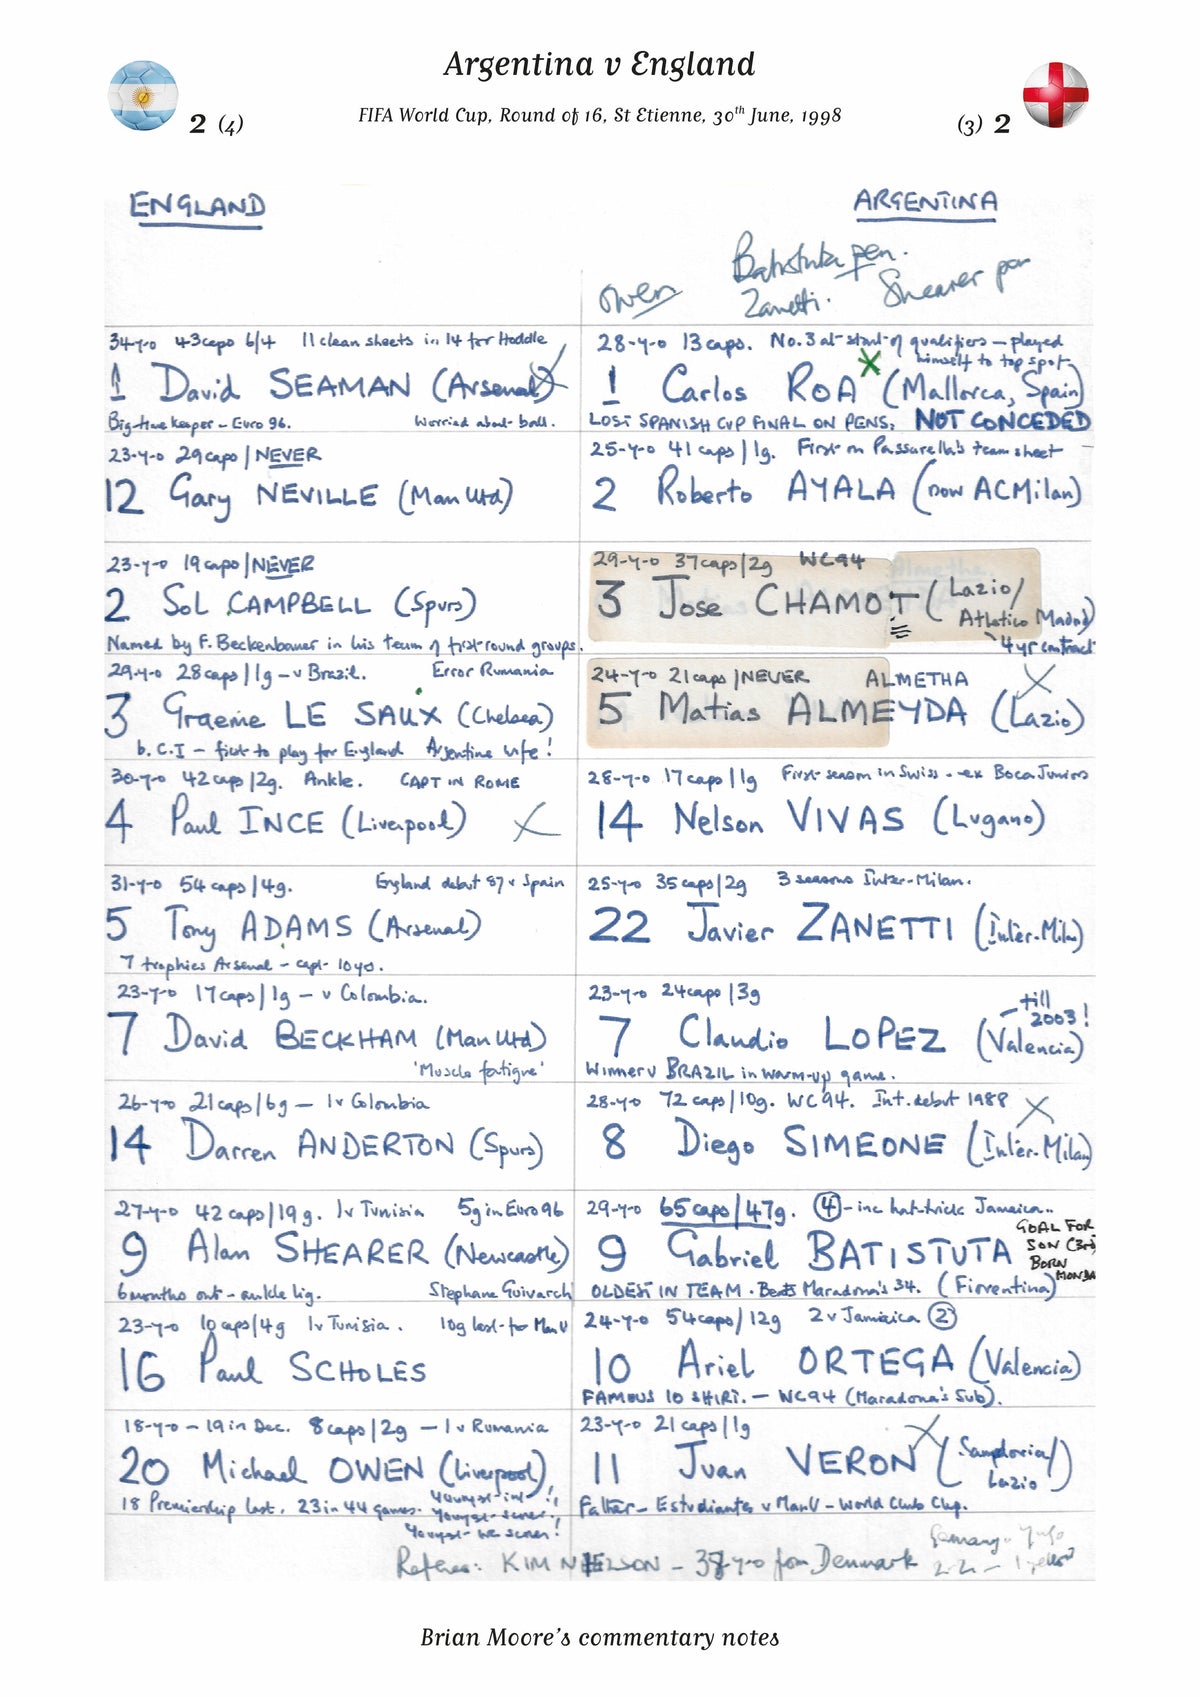 Argentina v England
FIFA World Cup, Round of 16, St Etienne, 30th June, 1998
2 (4)
(3) 2
ENGLAND
ARGENTINA
Batistuta pen.
Owen
Zanetti.
Shearer pen
34-y-o 43caps 6/4 11 clean sheets in 14 for Hoddle
1 David SEAMAN (Arsenal)
Big-time keeper - Euro 96. Worried about ball.
23-y-o 29caps/NEVER
12 Gary NEVILLE (Man Utd)
23-y-o 19caps/NEVER
2 Sol CAMPBELL (Spurs)
Named by F. Beckenbauer in his team of first-round groups.
29-y-o 28caps/1g - v Brazil. Error Rumania
3 Graeme LE SAUX (Chelsea)
b. C.I - first to play for England Argentine wife!
30-y-o 42caps/2g. Ankle. CAPT IN ROME
4 Paul INCE (Liverpool)
31-y-o 54caps/4g. England debut 87 v Spain
5 Tony ADAMS (Arsenal)
7 trophies Arsenal - capt 10yrs.
23-y-o 17caps/1g - v Colombia.
7 David BECKHAM (Man Utd)
'Muscle fatigue'
26-y-o 21caps/6g - 1v Colombia
14 Darren ANDERTON (Spurs)
27-y-o 42caps/19g. 1v Tunisia 5g in Euro 96
9 Alan SHEARER (Newcastle)
6months out - ankle lig. Stephane Guivarch
23-y-o 10caps/4g 1v Tunisia. 10g last for ManU
16 Paul SCHOLES
18-y-o - 19 in Dec. 8caps/2g - 1v Rumania
20 Michael OWEN (Liverpool)
18 Premiership last. 23 in 44 games. Youngest-int!
Youngest-scorer!
Youngest-WC scorer!
28-y-o 13caps. No.3 at start of qualifiers - played
himself to top spot
1 Carlos ROA (Mallorca, Spain)
LOST SPANISH CUP FINAL ON PENS. NOT CONCEDED
25-y-o 41caps/1g. First on Passarella's team sheet
2 Roberto AYALA (now ACMilan)
29-y-o 37caps/2g WC94
3 Jose CHAMOT (Lazio/
Atletico Madrid)
4yr contract
24-y-o 21caps/NEVER ALMETHA
5 Matias ALMEYDA (Lazio)
28-y-o 17caps/1g First season in Swiss - ex Boca Juniors
14 Nelson VIVAS (Lugano)
25-y-o 35caps/2g 3 seasons Inter-Milan.
22 Javier ZANETTI (Inter-Mila)
23-y-o 24caps/3g
till
2003!
7 Claudio LOPEZ (Valencia)
Winner v BRAZIL in warm-up game.
28-y-o 72caps/10g. WC94. Int. debut 1988
8 Diego SIMEONE (Inter-Milan)
29-y-o 65caps/47g. (4) - inc hat-trick Jamaica..
9 Gabriel BATISTUTA
GOAL FOR
SON (3rd)
BORN
MONDA
OLDEST IN TEAM. Beats Maradona's 34. (Fiorentina)
24-y-o 54caps/12g 2 v Jamaica (2)
10 Ariel ORTEGA (Valencia)
FAMOUS 10 SHIRT. - WC94 (Maradona's Sub).
23-y-o 21caps/1g
11 Juan VERON (Sampdoria/
Lazio)
Father - Estudiantes v ManU - World Club Cup.
Referee: KIM NIELSON - 37-y-o from Denmark
Germany - Yugo
2-2
Brian Moore's commentary notes